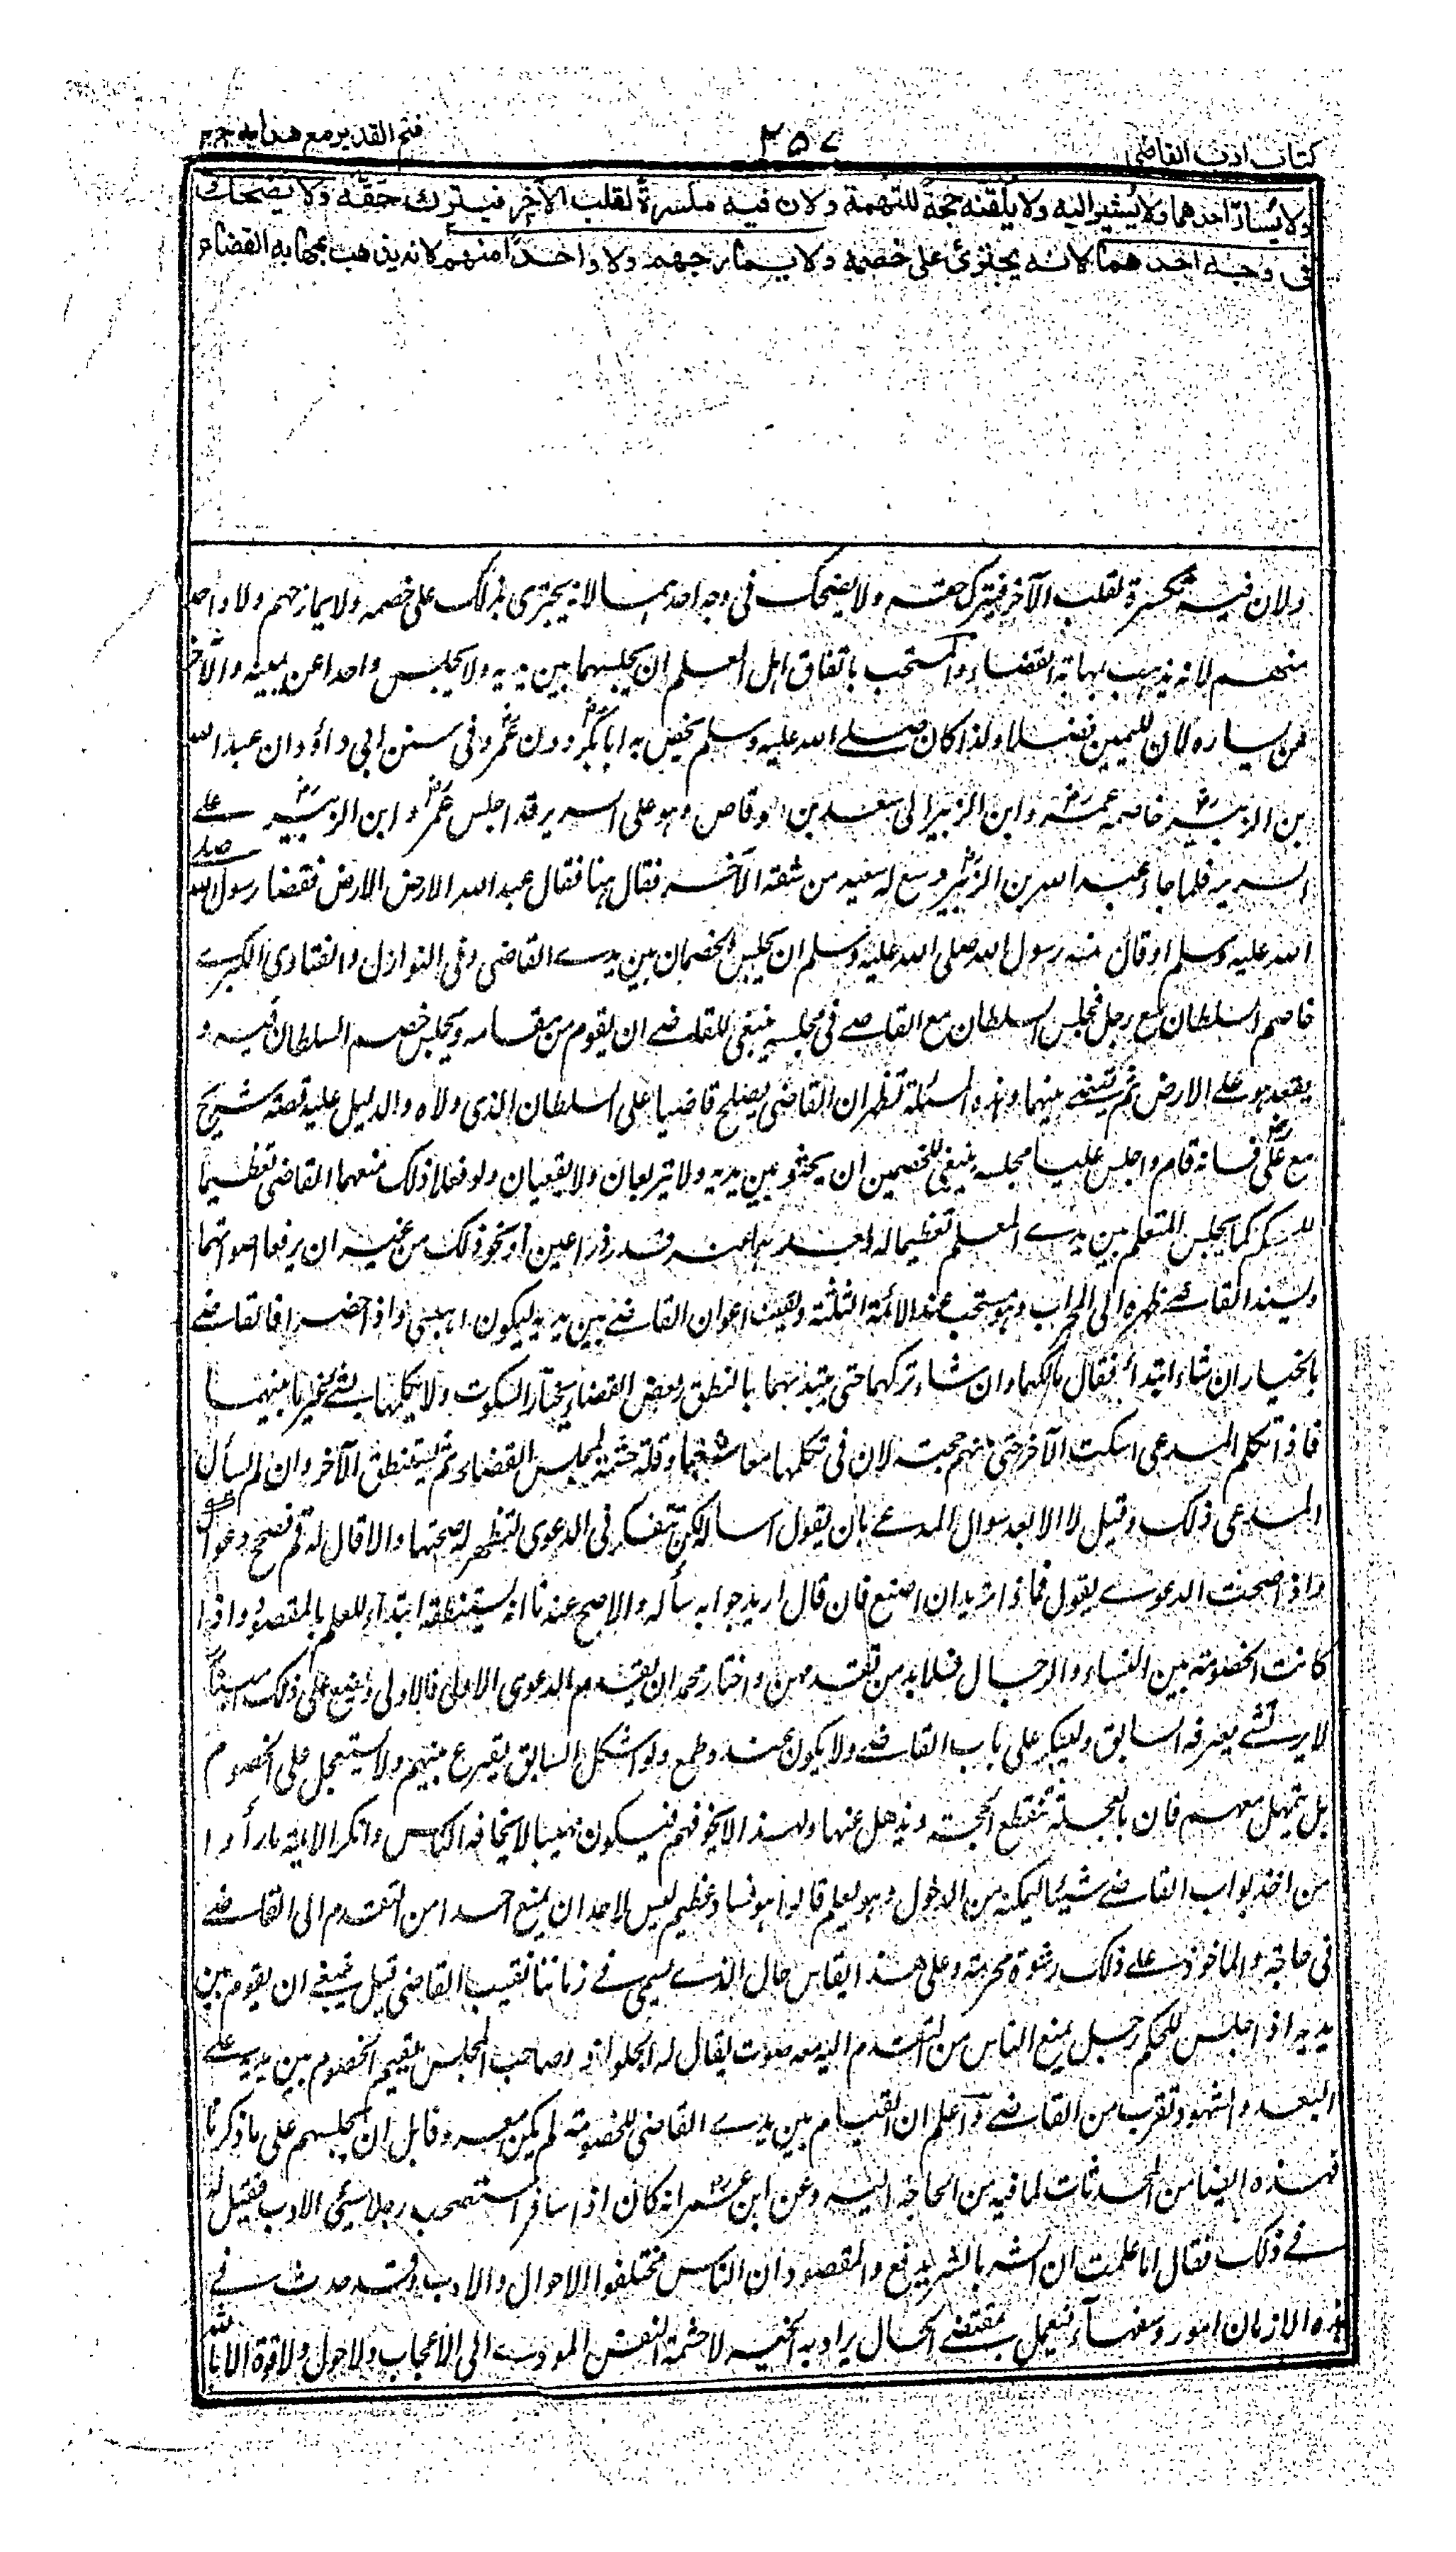 كتاب ادب القاضى
٣٥٧
فتح القدير مع هدايه ج ٣
ولا يُسارّ احدهما ولا يُشير اليه ولا يُلقنه حجةً للتهمة ولان فيه مكسرةً لقلب الآخر فيترك حقه ولا يضحك
فى وجه احدهما لانه يجترئ على خصمه ولا يمازحهم ولا واحدا منهم لانه يذهب بمهابه القضاء
ولان فيه مكسرة لقلب الآخر فيترك حقه ولا يضحك فى وجه احدهما لانه يجترى بذلك على خصمه ولا يمازحهم ولا واحدا
منهم لانه يذهب بمهابة القضاء والمستحب باتفاق اهل العلم ان يجلسهما بين يديه ولا يجلس واحدا عن يمينه والآخر
عن يساره لان لليمين فضلا ولذا كان صلى الله عليه وسلم يخص به ابابكر دون عمر وفى سنن ابى داؤد ان عبد الله
بن الزبير خاصمه عمرو ابن الزبير الى سعيد بن وقاص وهو على السرير قد اجلس عمرو ابن الزبير على
السرير فلما جاء عبد الله بن الزبير وسع له سعيد من شقه الآخر فقال هنا فقال عبد الله الارض الارض فقضا رسول الله صلى
الله عليه وسلم او قال سنة رسول الله صلى الله عليه وسلم ان يجلس الخصمان بين يدى القاضى وفى النوازل والفتاوى الكبرى
خاصم السلطان مع رجل فجلس السلطان مع القاضى فى مجلسه ينبغى للقاضى ان يقوم من مقامه ويجلس خصم السلطان فيه و
يقعد هو على الارض ثم يقضى بينهما وهذه المسئلة تظهر ان القاضى يصلح قاضيا على السلطان الذى ولاه والدليل عليه قصة شريح
مع على فانه قام واجلس عليا مجلسه ينبغى للخصمين ان يجثو بين يديه ولا يتربعان ولا يقعيان ولو فعلا ذلك منعهما القاضى تعظيما
للحكم كما يجلس المتعلم بين يدى المعلم تعظيما له ويبعدهما عنه قدر ذراعين او نحو ذلك من غير ان يرفعا اصواتهما
ويسند القاضى ظهره الى المحراب وهو مستحب عند الائمة الثلثة ويقف اعوان القاضى بين يديه ليكون اهيب واذا حضرا فالقاضى
بالخيار ان شاء ابتدأ فقال مالكما وان شاء تركهما حتى يبتدئهما بالنطق وبعض القضاة يختار السكوت ولا يكلمهما بشئ غير ما بينهما
فاذا تكلم المدعى اسكت الآخر حتى يفهم حجته لان فى تكلمهما معا شغبا وقلة حشمة لمجلس القضاء ثم يستنطق الآخر وان لم يسأل
المدعى ذلك وقيل لا الا بعد سوال المدعى بان يقول اسأله لكن يتفكر فى الدعوى لتظهر له صحتها والا قال له قم فصحح دعواك
واذا صحت الدعوى يقول فماذا تريد ان اصنع فان قال اريد جوابه سأله والاصح عندنا انه يستنطقه ابتداء للعلم بالمقصود واذا
كانت الخصومة بين النساء والرجال فلا بد من تقديمهن واختار محمد ان يقدم الدعوى الاولى فالاولى ويضع على ذلك امينا
لا يرتشى يعرفه السابق وليبكر على باب القاضى ولا يكون عنده طمع ولو اشكل السابق يقرع بينهم ولا يستعجل على الخصوم
بل يتمهل معهم فان بالعجلة تنقطع الحجة ويذهل عنها ولهذا لا يخوفهم فيكون مهيبا لا يخافه الناس وانكر الائمة ما رأوا
من اخذ بواب القاضى شيئا ليمكنه من الدخول وهو يعلم قالوا هو فساد عظيم ليس لاحد ان يمنع احدا من التقدم الى القاضى
فى حاجة والماخوذ على ذلك رشوة محرمة وعلى هذا القياس حال الذى يسمى فى زماننا نقيب القاضى قيل ينبغى ان يقوم بين
يديه اذا جلس للحكم رجل يمنع الناس من التقدم اليه معه صوت يقال له الجلواز وصاحب المجلس يقيم الخصوم بين يديه على
البعد والشهود تقرب من القاضى واعلم ان القيام بين يدى القاضى للخصومة لم يكن معهودا قبل ان يجلسهم على ما ذكرنا
فهذه ايضا من المحدثات لما فيه من الحاجة اليه وعن ابن عمر انه كان اذا سافر استصحب رجلا سيئ الادب فقيل له
فى ذلك فقال اما علمت ان الشر بالشر يدفع والمقصود ان الناس مختلفوا الاحوال والادب وقد حدث فى
هذه الازمان امور وسفهاء فيعمل بمقتضى الحال يراد به الخير لا حشمة النفس المودى الى الاعجاب ولا حول ولا قوة الا بالله